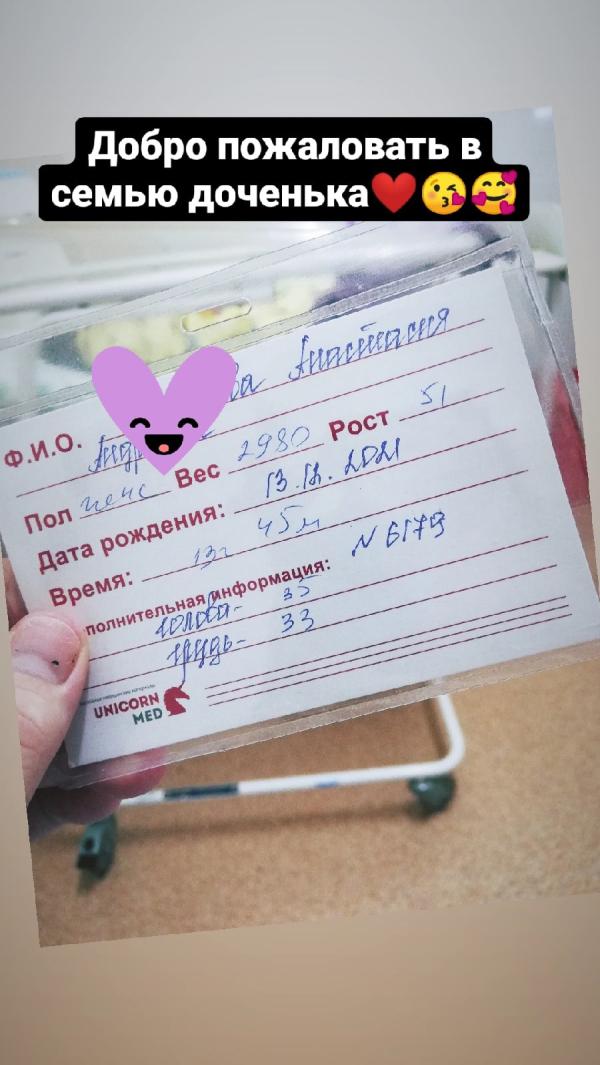 Добро пожаловать в
семью доченька❤️😘🥰
Ф.И.О. Анастасия
Пол жен Вес 2980 Рост 51
Дата рождения: 13.12.2021
Время: 13ч 45м
полнительная информация: N 6179
голова- 35
грудь- 33
UNICORN
MED